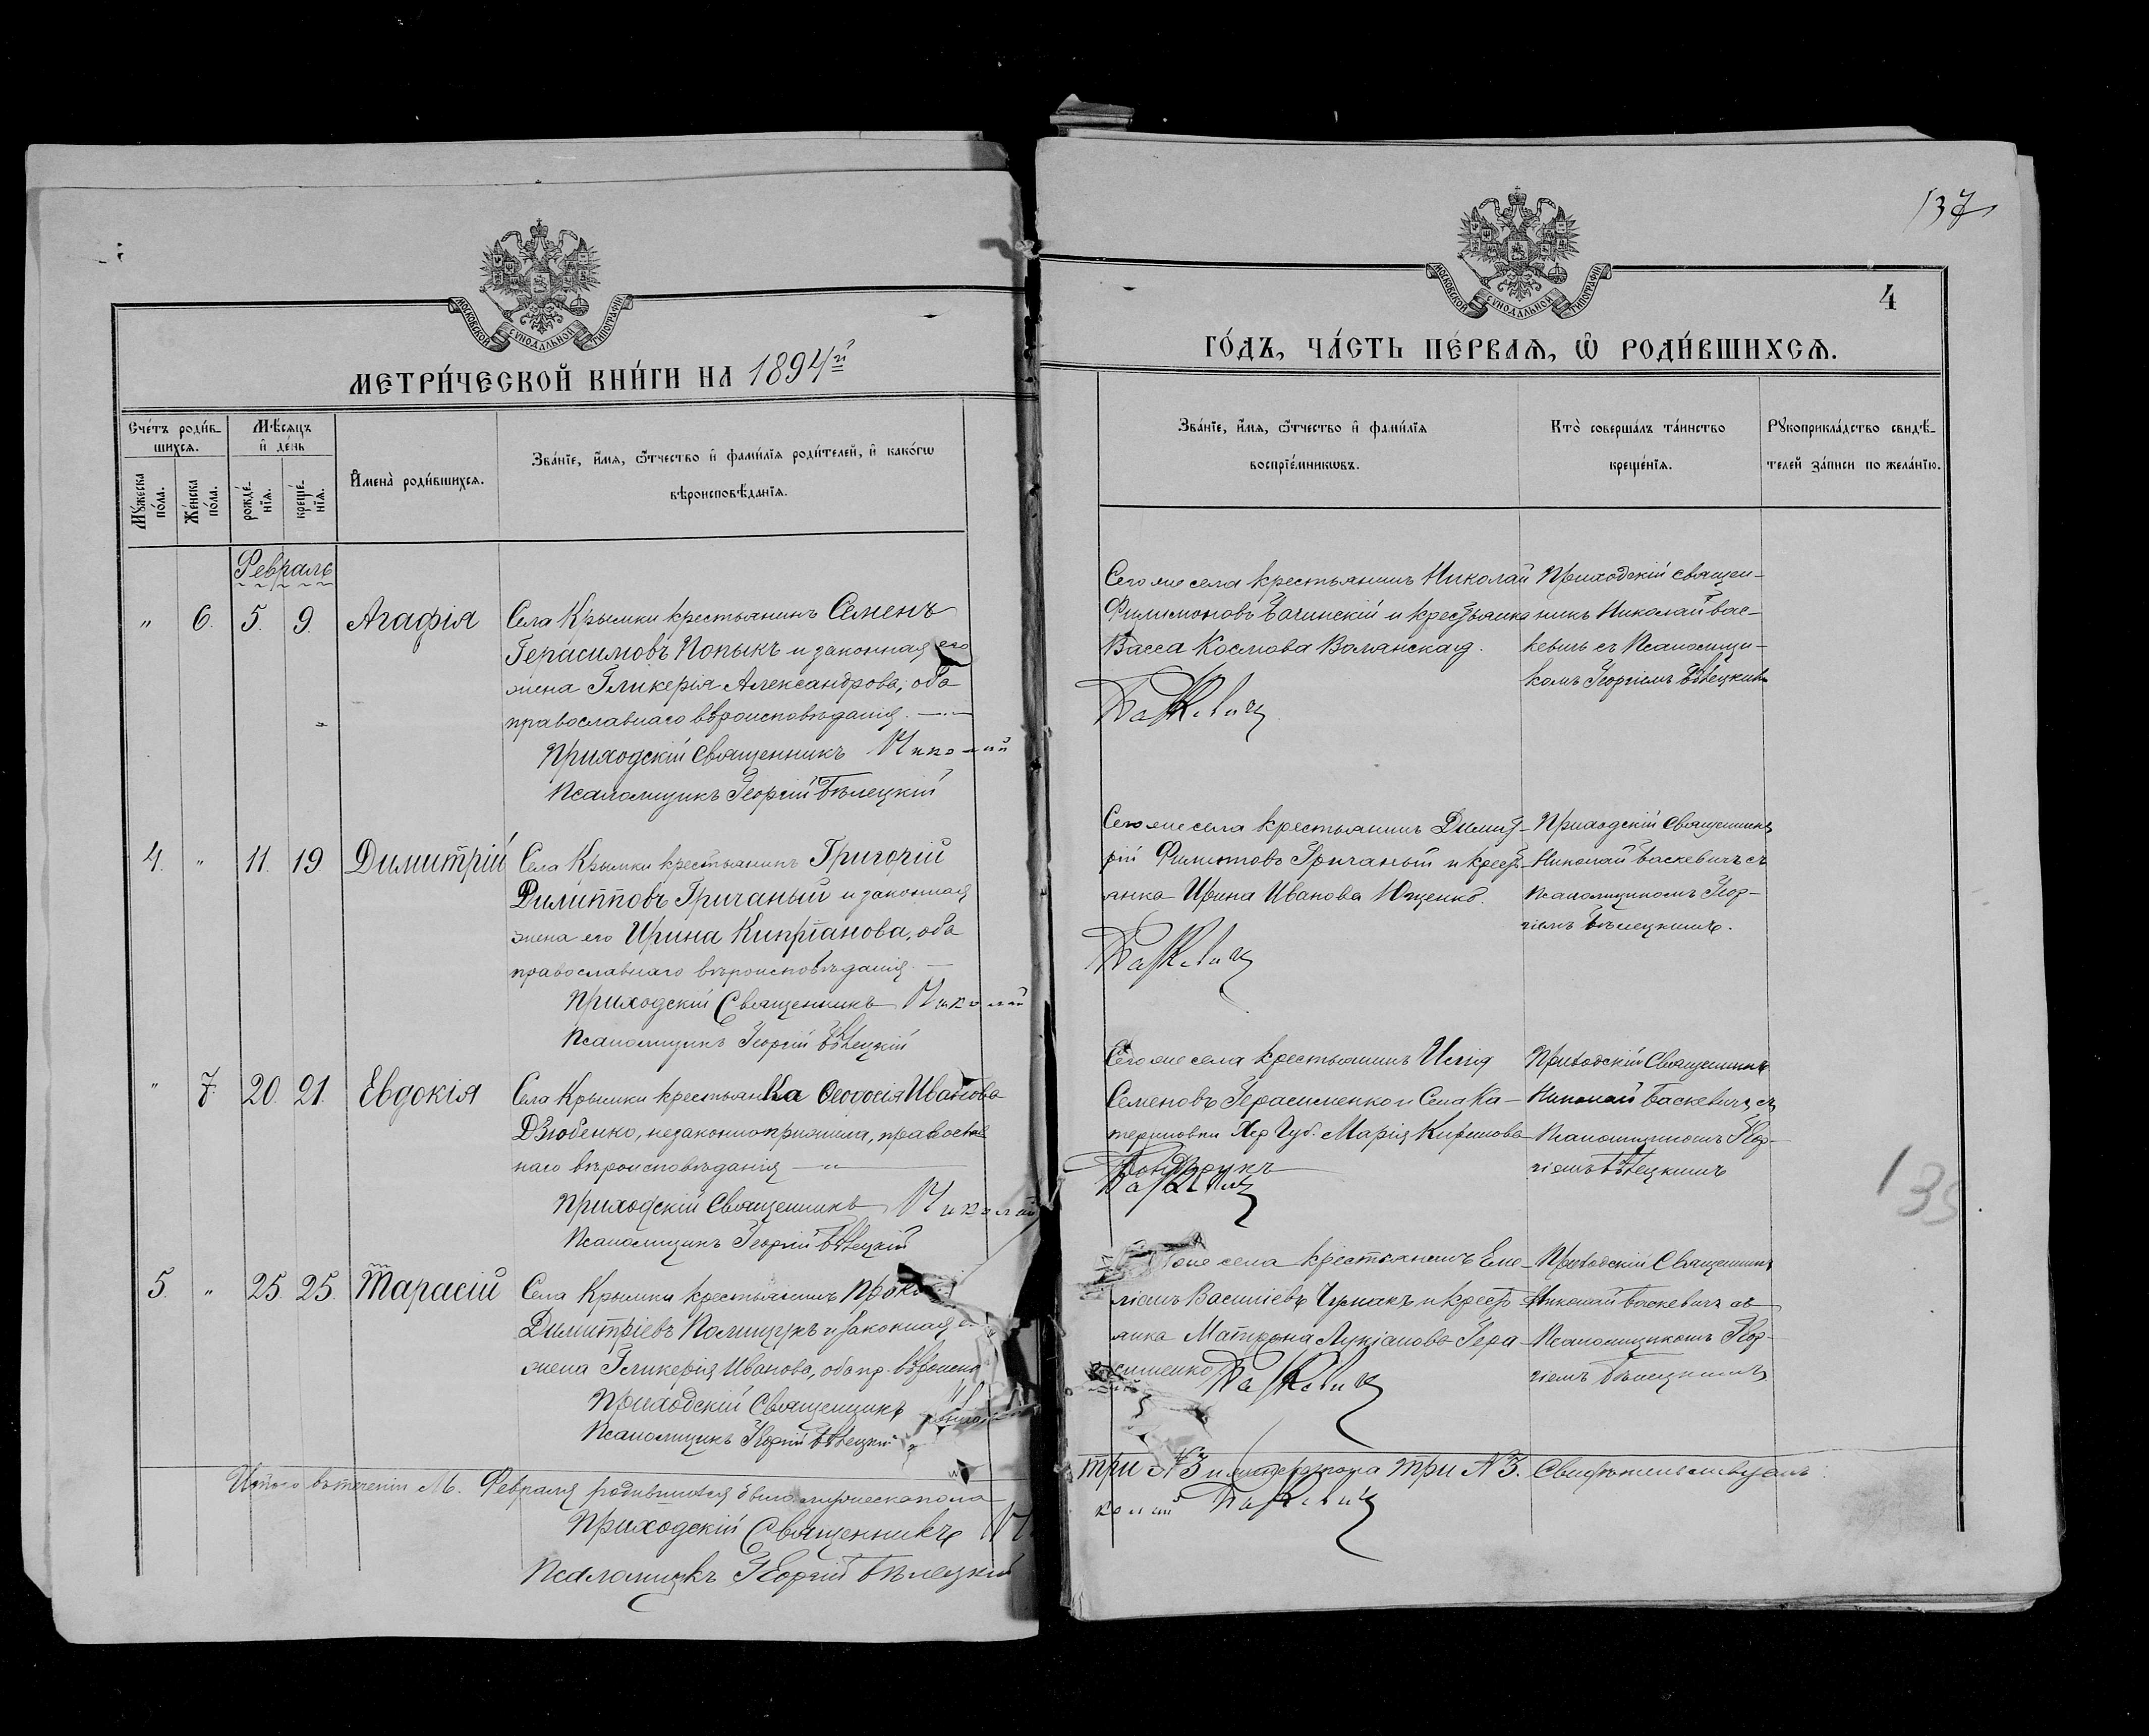 137
МОСКОВСКОЙ СУНОДАЛЬНОЙ ТИПОГРАФІИ
МЕТРИ́ЧЕСКОЙ КНИ́ГИ НА 1894й
Сче́тъ роди́в-
шихсѧ.
Мѣ́сѧцъ
и҆ де́нь
Мꙋ́жеска
по́ла.
Же́нска
по́ла.
рожде́-
нїѧ.
креще́-
нїѧ.
И҆мена̀ роди́вшихсѧ.
Зва́нїе, и҆́мѧ, ѻ҆́тчество и҆ фами́лїѧ роди́телей, и҆ како́гѡ
вѣроисповѣ́данїѧ.
Февраль
" 6. 5. 9. Агафія
Села Крымки крестьянинъ Семенъ
Герасимовъ Попыкъ и законная его
жена Гликерія Александрова, оба
православнаго вѣроисповѣданія.
Приходскій Священникъ Николай
Псаломщикъ Георгій Бѣлецкій
4. " 11. 19. Димитрій
Села Крымки крестьянинъ Григорій
Филипповъ Гричаный и законная
жена его Ирина Кипріанова, оба
православнаго вѣроисповѣданія.
Приходскій Священникъ Николай
Псаломщикъ Георгій Бѣлецкій
" 7. 20. 21. Евдокія
Села Крымки крестьянка Ѳеодосія Иванова
Дзюбенко, незаконноприжила, православ
наго вѣроисповѣданія
Приходскій Священникъ Николай
Псаломщикъ Георгій Бѣлецкій
5. " 25. 25. Тарасій
Села Крымки крестьянинъ
Димитріевъ Полищукъ и законная
жена Гликерія Иванова, оба пр. вѣроиспо
Приходскій Священникъ
Псаломщикъ Георгій Бѣлецкій
Итого въ теченіи М. Февраля родившихся было мужеска пола
Приходскій Священникъ Ни
Псаломщикъ Георгій Бѣлецкій
МОСКОВСКОЙ СУНОДАЛЬНОЙ ТИПОГРАФІИ
4
ГО́ДЪ, ЧА́СТЬ ПЕ́РВАѦ, Ѡ҆ РОДИ́ВШИХСѦ.
Зва́нїе, и҆́мѧ, ѻ҆́тчество и҆ фами́лїѧ
воспрїе́мникѡвъ.
Кто̀ соверша́лъ та́инство
креще́нїѧ.
Рꙋкоприкла́дство свидѣ́-
телей за́писи по жела́нїю.
Сего же села крестьянинъ Николай
Филимоновъ Бачинскій и крестьянка
Васса Космова Волянская.
Баскевичъ
Приходскій священ-
никъ Николай Бас-
кевичъ съ Псаломщи-
комъ Георгіемъ Бѣлецкимъ
Сего же села крестьянинъ Димит-
рій Филиповъ Гричаный и крест-
янка Ирина Иванова Ющенко.
Баскевичъ
Приходскій Священникъ
Николай Баскевичъ съ
Псаломщикомъ Геор-
гіемъ Бѣлецкимъ.
Сего же села крестьянинъ Илія
Семеновъ Герасименко и Села Ка-
териновки Хер Губ. Марія
Баскевичъ
Приходскій Священникъ
Николай Баскевичъ съ
Псаломщикомъ Геор-
гіемъ Бѣлецкимъ
села крестьянинъ Еме-
ліанъ Василіевъ Чумакъ и крест-
янка Матрона Лукіанова Гера-
сименко
Баскевичъ
Приходскій Священникъ
Николай Баскевичъ съ
Псаломщикомъ Геор-
гіемъ Бѣлецкимъ
три № 3 и женска пола три № 3. Свидѣтельствуемъ:
колай Баскевичъ